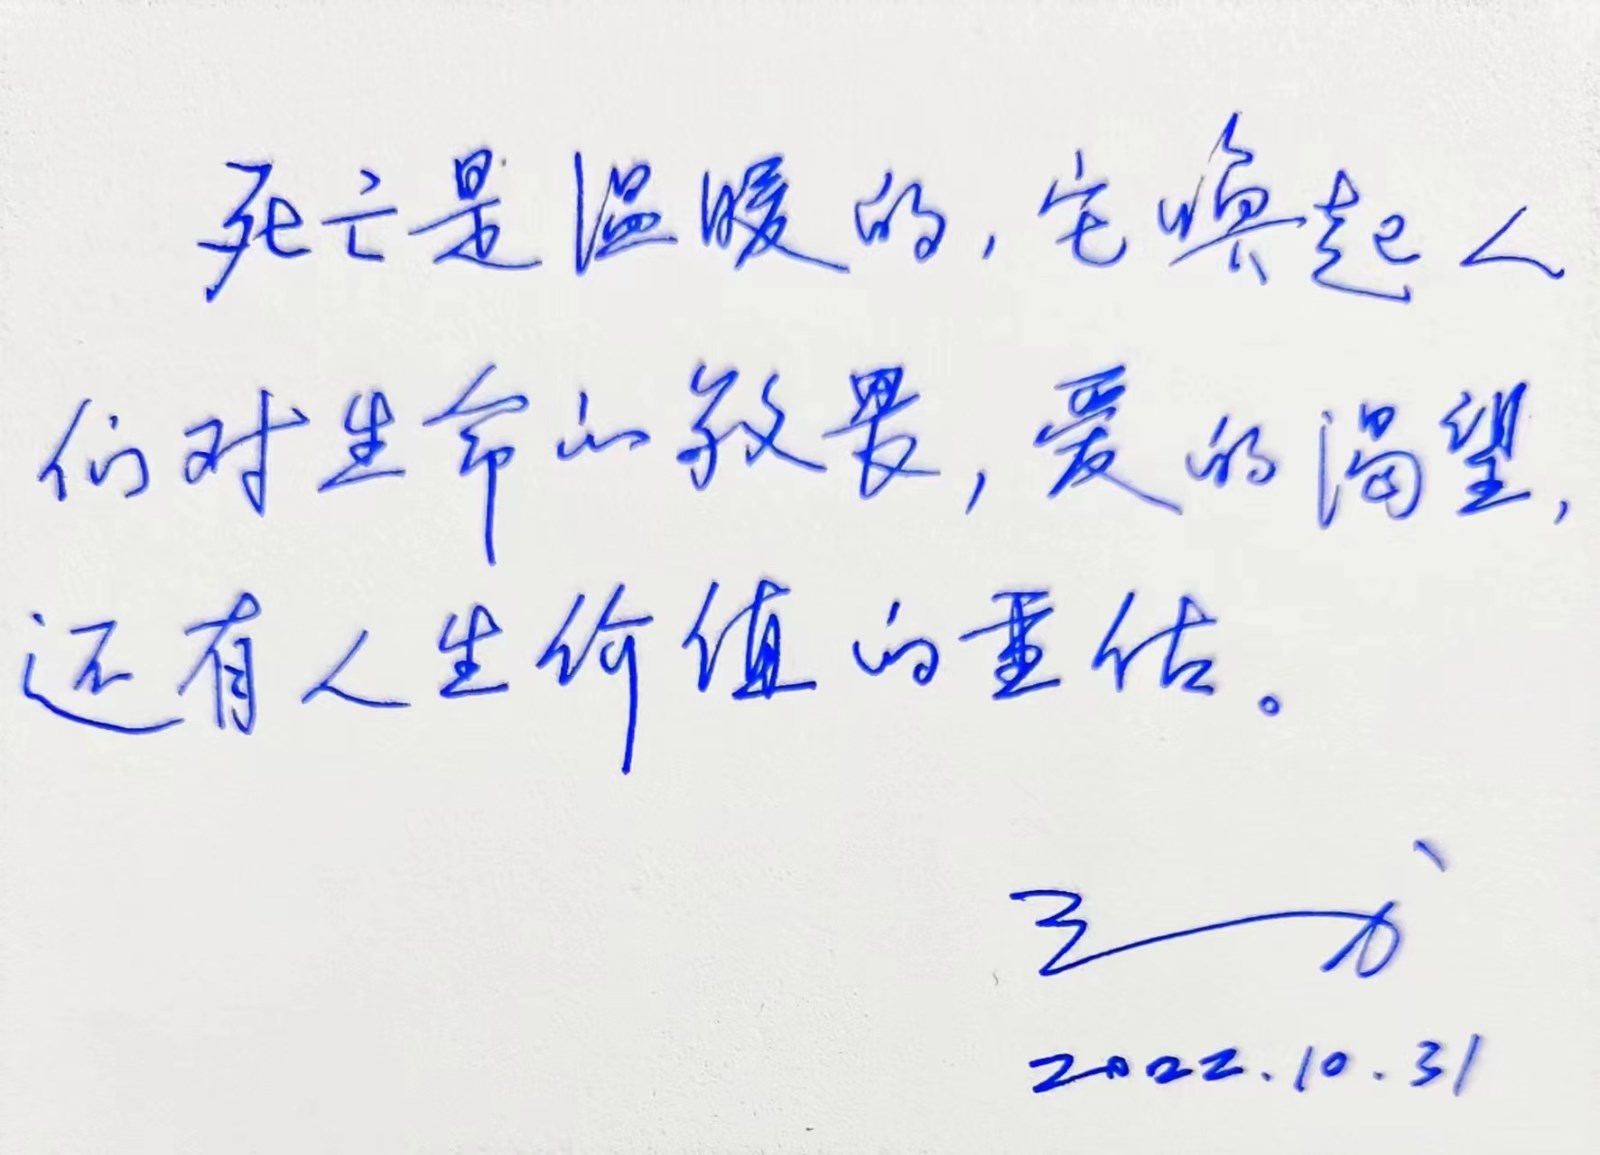 死亡是温暖的，它唤起人
们对生命的敬畏，爱的渴望，
还有人生价值的重估。
2022.10.31